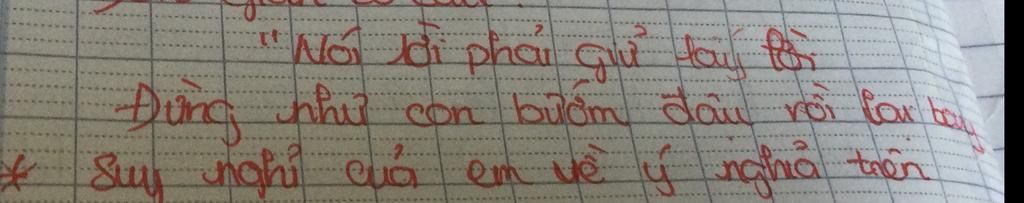 "Nói lời phải giữ lấy lời
Đừng như con bướm đậu rồi lại bay
* Suy nghĩ của em về ý nghĩa trên